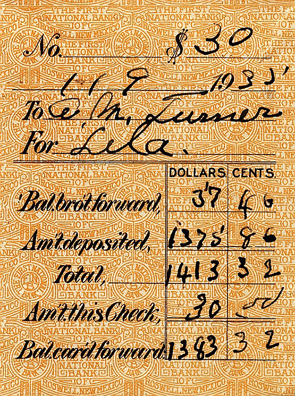 No. $30
1 19 1933
To A. M. Turner
For Lela.
DOLLARS CENTS
Bal. bro't forward, 37 46
Am't deposited, 1375 86
Total, 1413 32
Am't. this Check, 30
Bal. car'd forward 1383 32